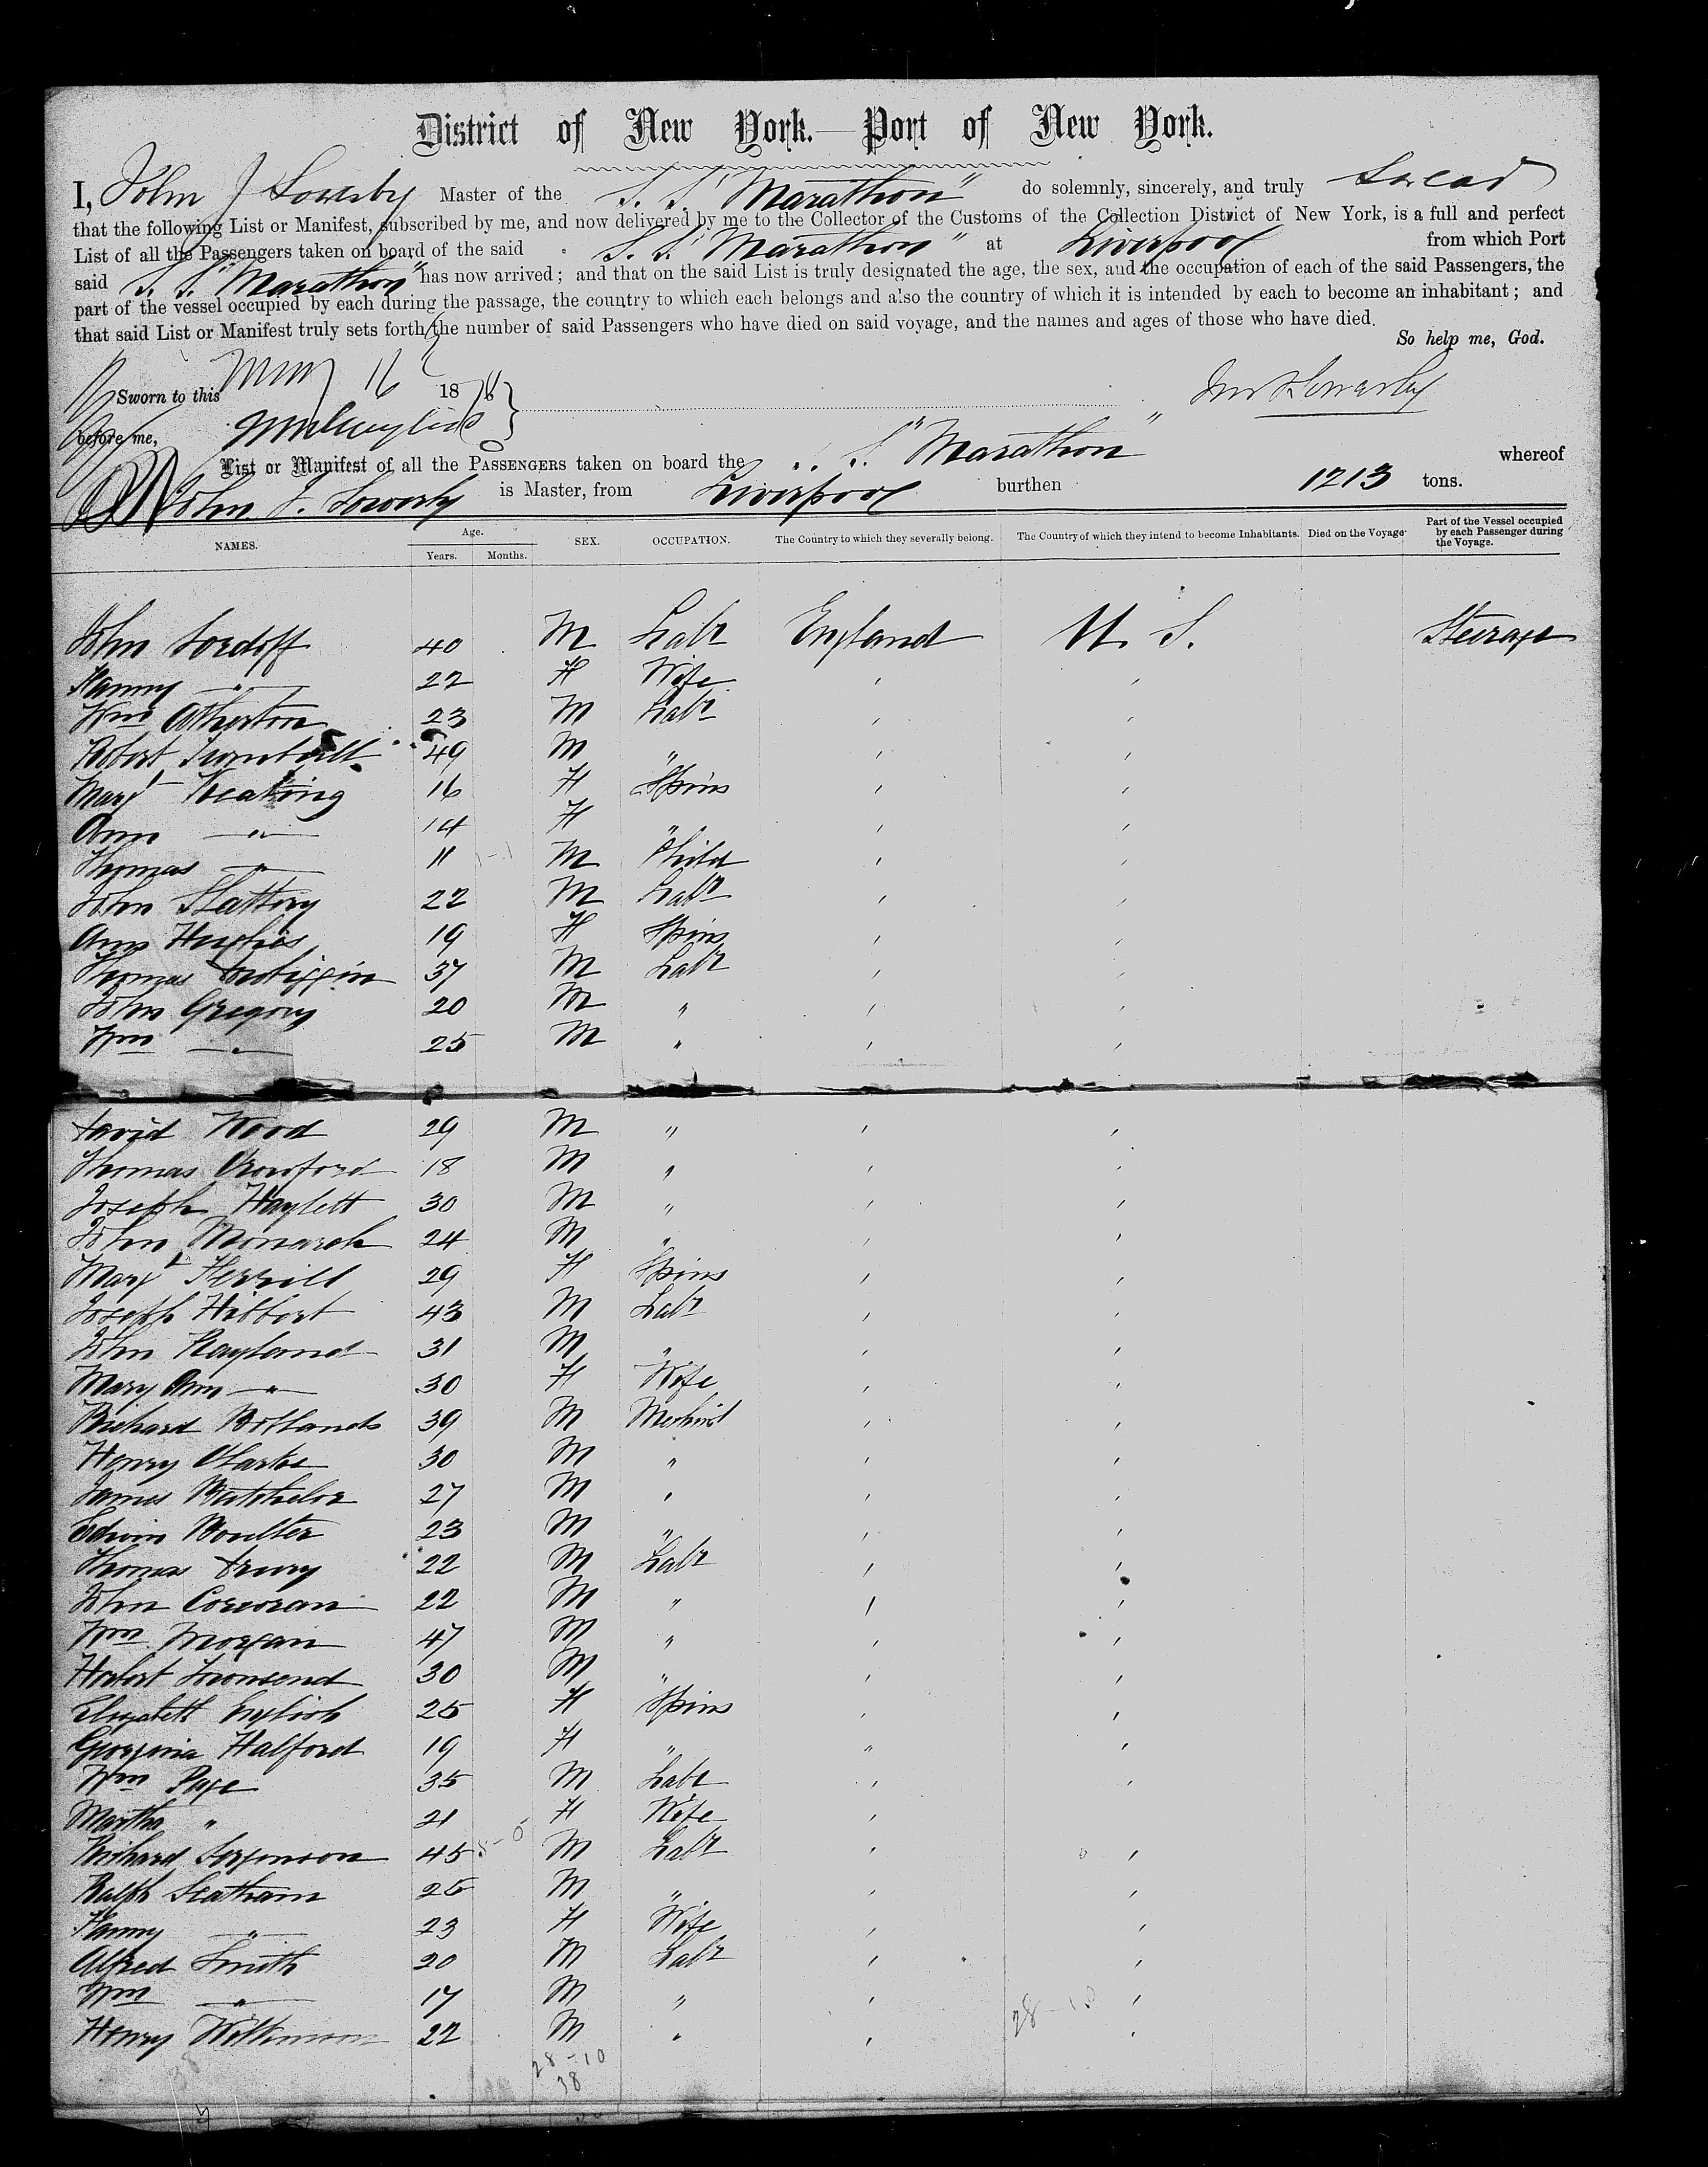 District of New York.—Port of New York.
I, John J Sowerby Master of the S. S. "Marathon" do solemnly, sincerely, and truly Swear
that the following List or Manifest, subscribed by me, and now delivered by me to the Collector of the Customs of the Collection District of New York, is a full and perfect
List of all the Passengers taken on board of the said S. S. "Marathon" at Liverpool from which Port
said S. S. "Marathon" has now arrived; and that on the said List is truly designated the age, the sex, and the occupation of each of the said Passengers, the
part of the vessel occupied by each during the passage, the country to which each belongs and also the country of which it is intended by each to become an inhabitant; and
that said List or Manifest truly sets forth the number of said Passengers who have died on said voyage, and the names and ages of those who have died.
So help me, God.
Sworn to this May 16 187
before me,
List or Manifest of all the PASSENGERS taken on board the S. S. "Marathon" whereof
John J. Sowerby is Master, from Liverpool burthen 1213 tons.
NAMES. Age. Years. Months. SEX. OCCUPATION. The Country to which they severally belong. The Country of which they intend to become Inhabitants. Died on the Voyage. Part of the Vessel occupied by each Passenger during the Voyage.
John 40 M Labr England U. S. Steerage
Fanny " 22 F Wife ' '
Wm Atherton 23 M Labr ' '
Robert Turnbull 49 M " ' '
Margt Keating 16 F Spins ' '
Ann " 14 F " ' '
Thomas " 11 M Child ' '
John Slattery 22 M Labr ' '
Ann Hughes 19 F Spins ' '
Thomas 37 M Labr ' '
John Gregory 20 M " ' '
Wm " 25 M " ' '
David Wood 29 M " ' '
Thomas Crawford 18 M " ' '
Joseph Haylett 30 M " ' '
John Monarch 24 M " ' '
Margt Herrill 29 F Spins ' '
Joseph Hibbert 43 M Labr ' '
John Rayland 31 M " ' '
Mary Ann " 30 F Wife ' '
Richard Bollands 39 M Mechist ' '
Henry Clarke 30 M " ' '
James Batchelor 27 M " ' '
Edwin Boulter 23 M " ' '
Thomas Drury 22 M Labr ' '
John Corcoran 22 M " ' '
Wm Morgan 47 M " ' '
Herbert Townsend 30 M " ' '
Elizabeth English 25 F Spins ' '
Georgina Halford 19 F " " '
Wm Page 35 M Labr ' '
Martha " 21 F Wife ' '
Richard Jorgenson 45 M Labr ' '
Ralph Leatham 25 M " ' '
Fanny " 23 F Wife ' '
Alfred Smith 20 M Labr ' '
Wm " 17 M " ' '
Henry Wilkinson 22 M " ' '
28-10
28-10
38
38